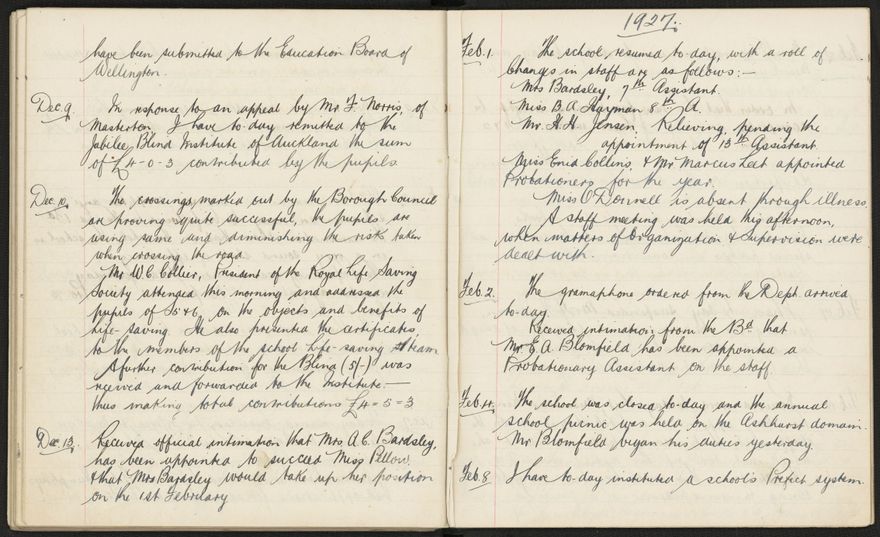 have been submitted to the Education Board of
Wellington.
Dec. 9. In response to an appeal by Mr F. Norris, of
Masterton, I have to-day remitted to the
Jubilee Blind Institute of Auckland the sum
of £4-0-3 contributed by the pupils
Dec. 10. The crossings, marked out by the Borough Council
are proving quite successful, the pupils are
using same and diminishing the risk taken
when crossing the road.
Mr W C Collier, President of the Royal Life Saving
Society attended this morning and addressed the
pupils of S5+6 on the objects and benefits of
life-saving. He also presented the certificates
to the members of the school life-saving team
A further contribution for the Blind (5/-) was
received and forwarded to the Institute:—
thus making total contributions £4-5-3
Dec 13. Received official intimation that Mrs A C. Bardsley,
has been appointed to succeed Miss Pillow,
& that Mrs Bardsley would take up her position
on the 1st February
1927.
Feb. 1. The school resumed to-day, with a roll of
Changes in staff are as follows:—
Mrs Bardsley, 7th Assistant.
Miss B. A. Hayman 8th A.
Mr. H. H. Jensen, Relieving, pending the
appointment of 13th Assistant
Miss Enid Collins, & Mr Marcus Leet appointed
Probationers for the year.
Miss O'Donnell is absent through illness.
A staff meeting was held this afternoon,
when matters of Organization & Supervision were
dealt with.
Feb. 2. The gramaphone ordered from the Dept. arrived
to-day.
Received intimation from the Bd that
Mr E. A. Blomfield has been appointed a
Probationary Assistant on the staff.
Feb. 4. The school was closed to-day and the annual
school picnic was held on the Ashhurst domain.
Mr Blomfield began his duties yesterday
Feb. 8 I have to-day instituted a school's Prefect system.